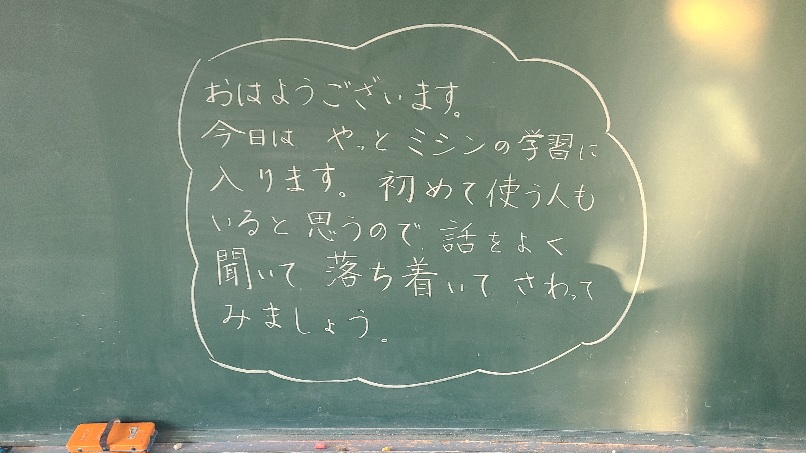 おはようございます。
今日は やっと ミシンの学習に
入ります。 初めて使う人も
いると思うので、話をよく
聞いて 落ち着いて さわって
みましょう。